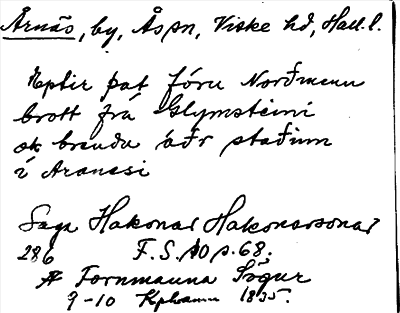 Årnäs, by, Åspn, Viske hd, Hall. l.
Eptir þat fóru Norðmenn
brott frá Glymsteini
ok brendu áðr staðinn
í Aranesi
Saga Hakonar Hakonarsonar
286 F. S. 10 s. 68.
Fornmanna Sögur
9-10 Kphamn 1835.